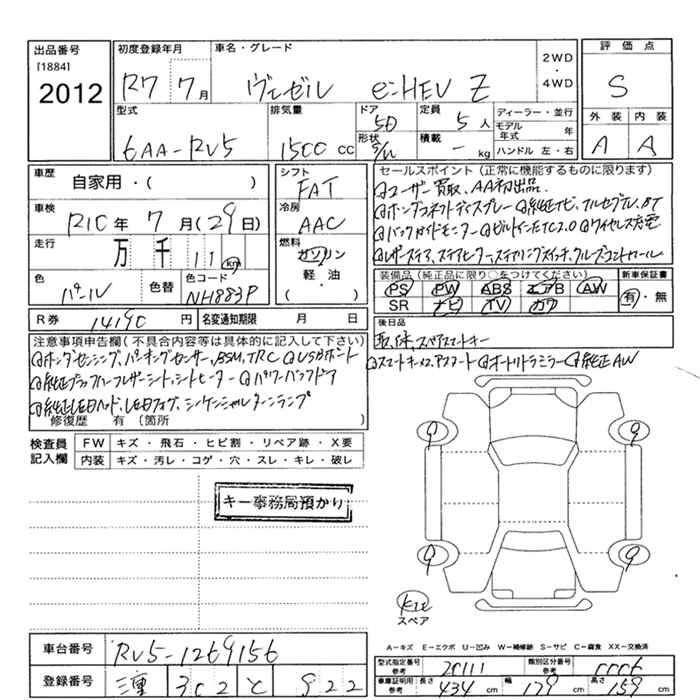 出品番号 初度登録年月 車名・グレード 2WD・4WD 評価点
[1884]
2012 R7 7月 ヴェゼル e:HEV Z S
型式 排気量 ドア 定員 ディーラー・並行
6AA-RV5 1500cc 5D 5人 モデル年式 年
形状 積載 外装 内装
S/W - kg ハンドル 左・右 A A
車歴 自家用・( ) シフト FAT
車検 R10年 7月(29日) 冷房 AAC
走行 万 千 11 km 燃料 ガソリン 軽・油 ( )
色 パール 色替 色コード NH883P
R券 14190円 名変通知期限 月 日
セールスポイント(正常に機能するものに限ります)
@ユーザー買取、AA初出品.
@ホンダコネクトディスプレー @純正ナビ、フルセグTV、BT
@バックガイドモニター @ビルトインETC2.0 @ワイヤレス充電
@レザーステア、ステアヒーター、ステアリングスイッチ、クルーズコントロール
装備品(純正品に限り○をつけてください) 新車保証書
PS PW ABS エアB AW 有・無
SR ナビ TV カワ
後日品
取、保、スペアスマートキー
注意事項申告欄(不具合内容等は具体的に記入して下さい)
@ホンダセンシング、パーキングセンサー、BSM、TRC @USBポート @スマートキー×2、アプスタート @オートリトラミラー @純正AW
@純正ブラックハーフレザーシート、シートヒーター @パワーバックドア
@純正LEDヘッド、LEDフォグ、シーケンシャルターンランプ
修復歴 有(箇所 )
検査員記入欄 FW キズ・飛石・ヒビ割・リペア跡・X要
内装 キズ・汚レ・コゲ・穴・スレ・キレ・破レ
キー事務局預かり
9 9
9 9
スペア
A－キズ E－エクボ U－凹み W－補修跡 S－サビ C－腐食 XX－交換済
車台番号 RV5-1269156
型式指定番号 参考 20111 類別区分番号 参考
登録番号 三重 302 と 922
車庫証明用 参考 長さ 434cm 幅 179cm 高さ 159cm